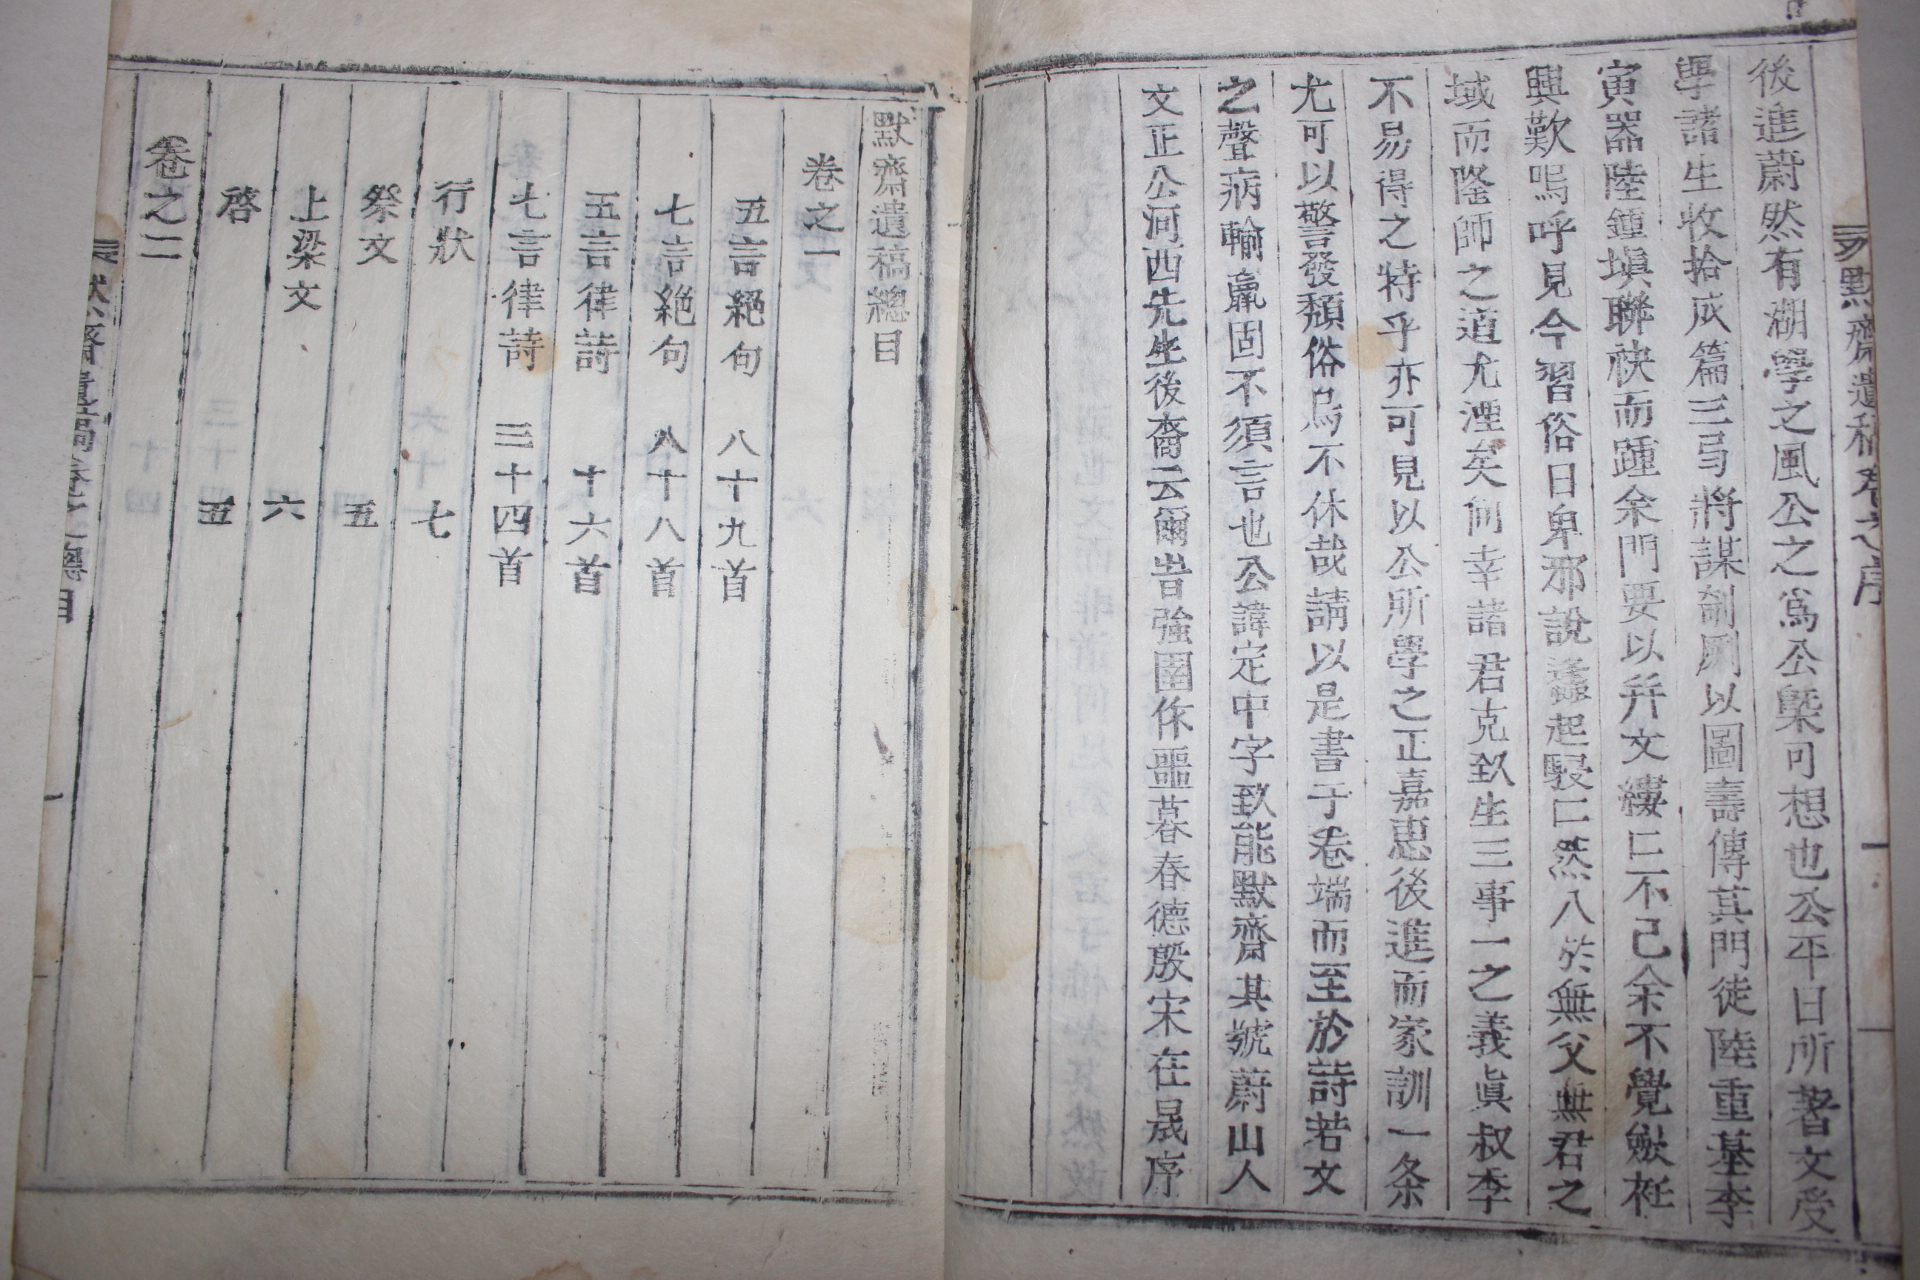 默齋遺稿卷之序
後進蔚然有湖學之風公之爲公槩可想也公平日所著文受
學諸生收拾成篇三弓將謀剞劂以圖壽傳其門徒陸重基李
寅器陸鍾塡聯袂而踵余門要以弁文縷〻不已余不覺斂衽
興歎嗚呼見今習俗日卑邪說蠭起駸〻然入於無父無君之
域而隆師之道尤湮矣何幸諸君克致生三事一之義眞叔季
不易得之特乎亦可見以公所學之正嘉惠後進而家訓一条
尤可以警發頹俗焉不休哉請以是書于卷端而至於詩若文
之聲病輸贏固不須言也公諱定中字致能默齋其號蔚山人
文正公河西先生後裔云爾旹強圉作噩暮春德殷宋在晟序
默齋遺稿總目
卷之一
五言絕句 八十九首
七言絕句 八十八首
五言律詩 十六首
七言律詩 三十四首
行狀 七
祭文 五
上梁文 六
啓 五
卷之二
默齋遺稿卷之總目